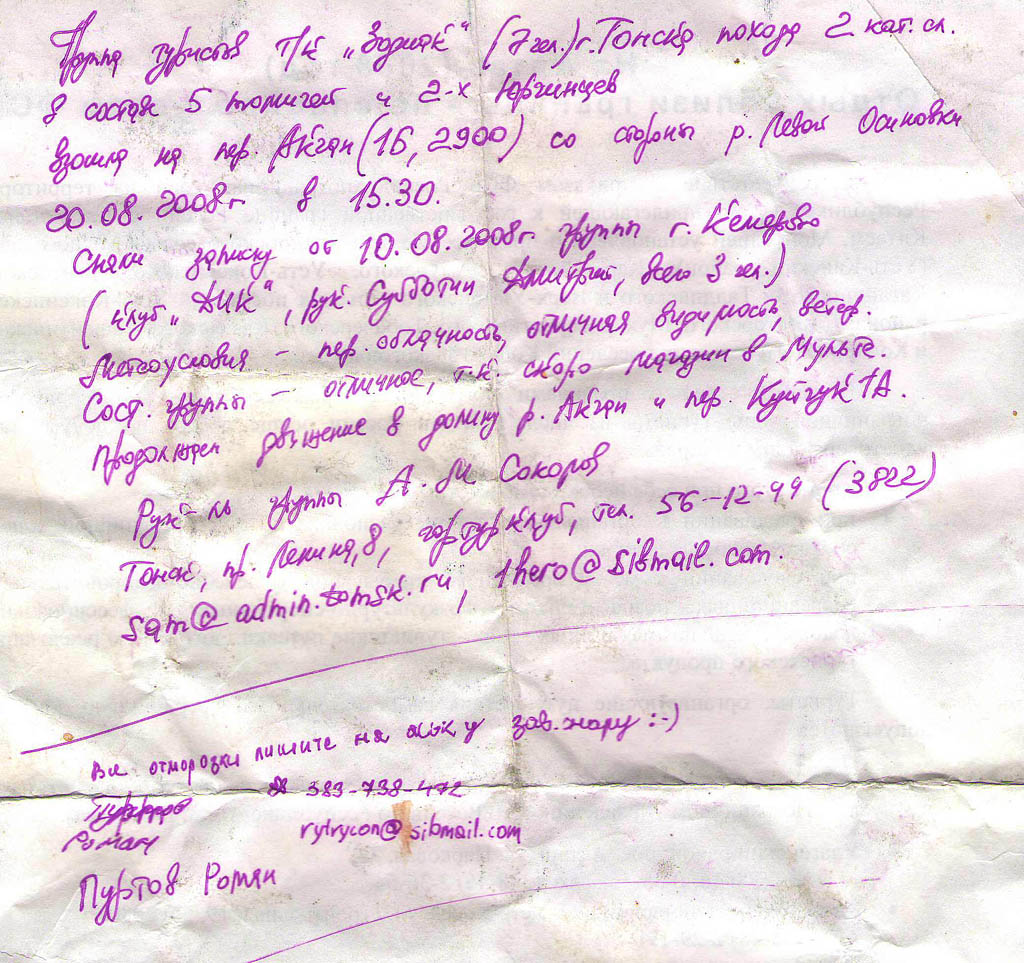 Группа туристов т/к "Зодиак" (7 чел.) г. Томска похода 2 кат. сл.
в составе 5 томичей и 2-х Юргинцев
взошла на пер. Акчан (1Б, 2900) со стороны р. Левой Осиновки
20.08.2008г в 15.30.
Сняли записку от 10.08.2008г группы г. Кемерово
(клуб "ДИК", рук. Субботин Дмитрий, всего 3 чел.)
Метеоусловия - пер. облачность, отличная видимость, ветер.
Сост. группы - отличное, т.к. скоро магазин в Мульте.
Продолжаем движение в долину р. Акчан и пер. Куйгук 1А.
Рук-ль группы А. М Сокоров
Томск, пр. Ленина, 8, гортурклуб, тел. 56-12-49 (3822)
sam@admin.tomsk.ru, 1hero@sibmail.com.
Все отморозки пишите на аську зав.жару :-)
383-738-472
Роман rylrycon@sibmail.com
Пуртов Роман